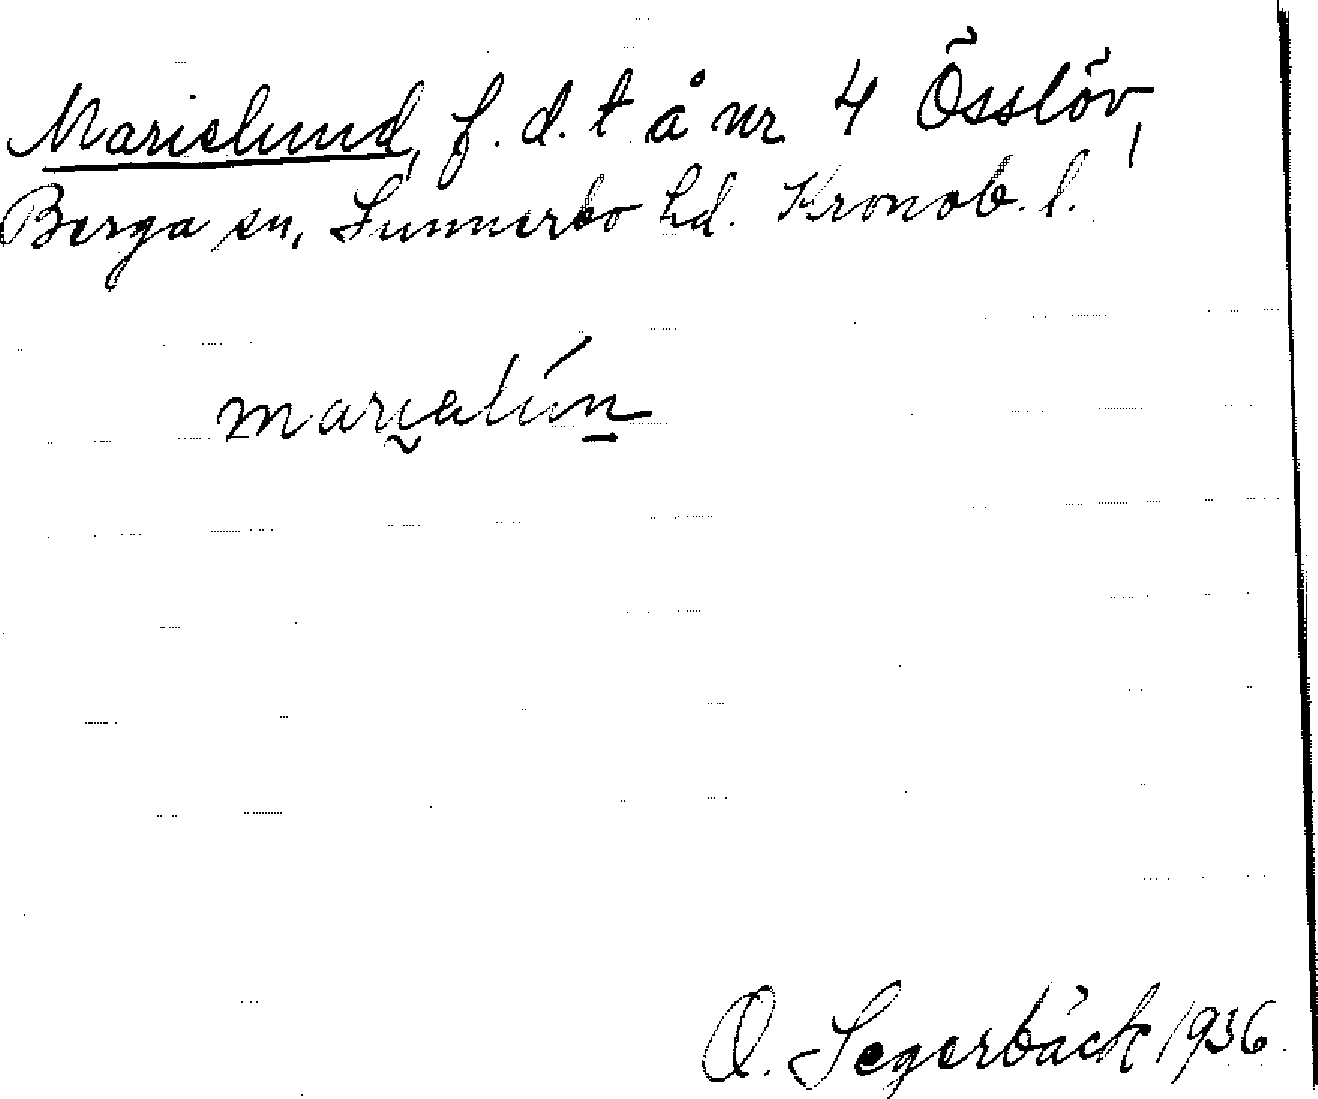 Marielund, f. d. t å nr 4 Össlöv,
Berga sn, Sunnerbo hd. Kronob. l.
marialún
O. Segerbäck 1936